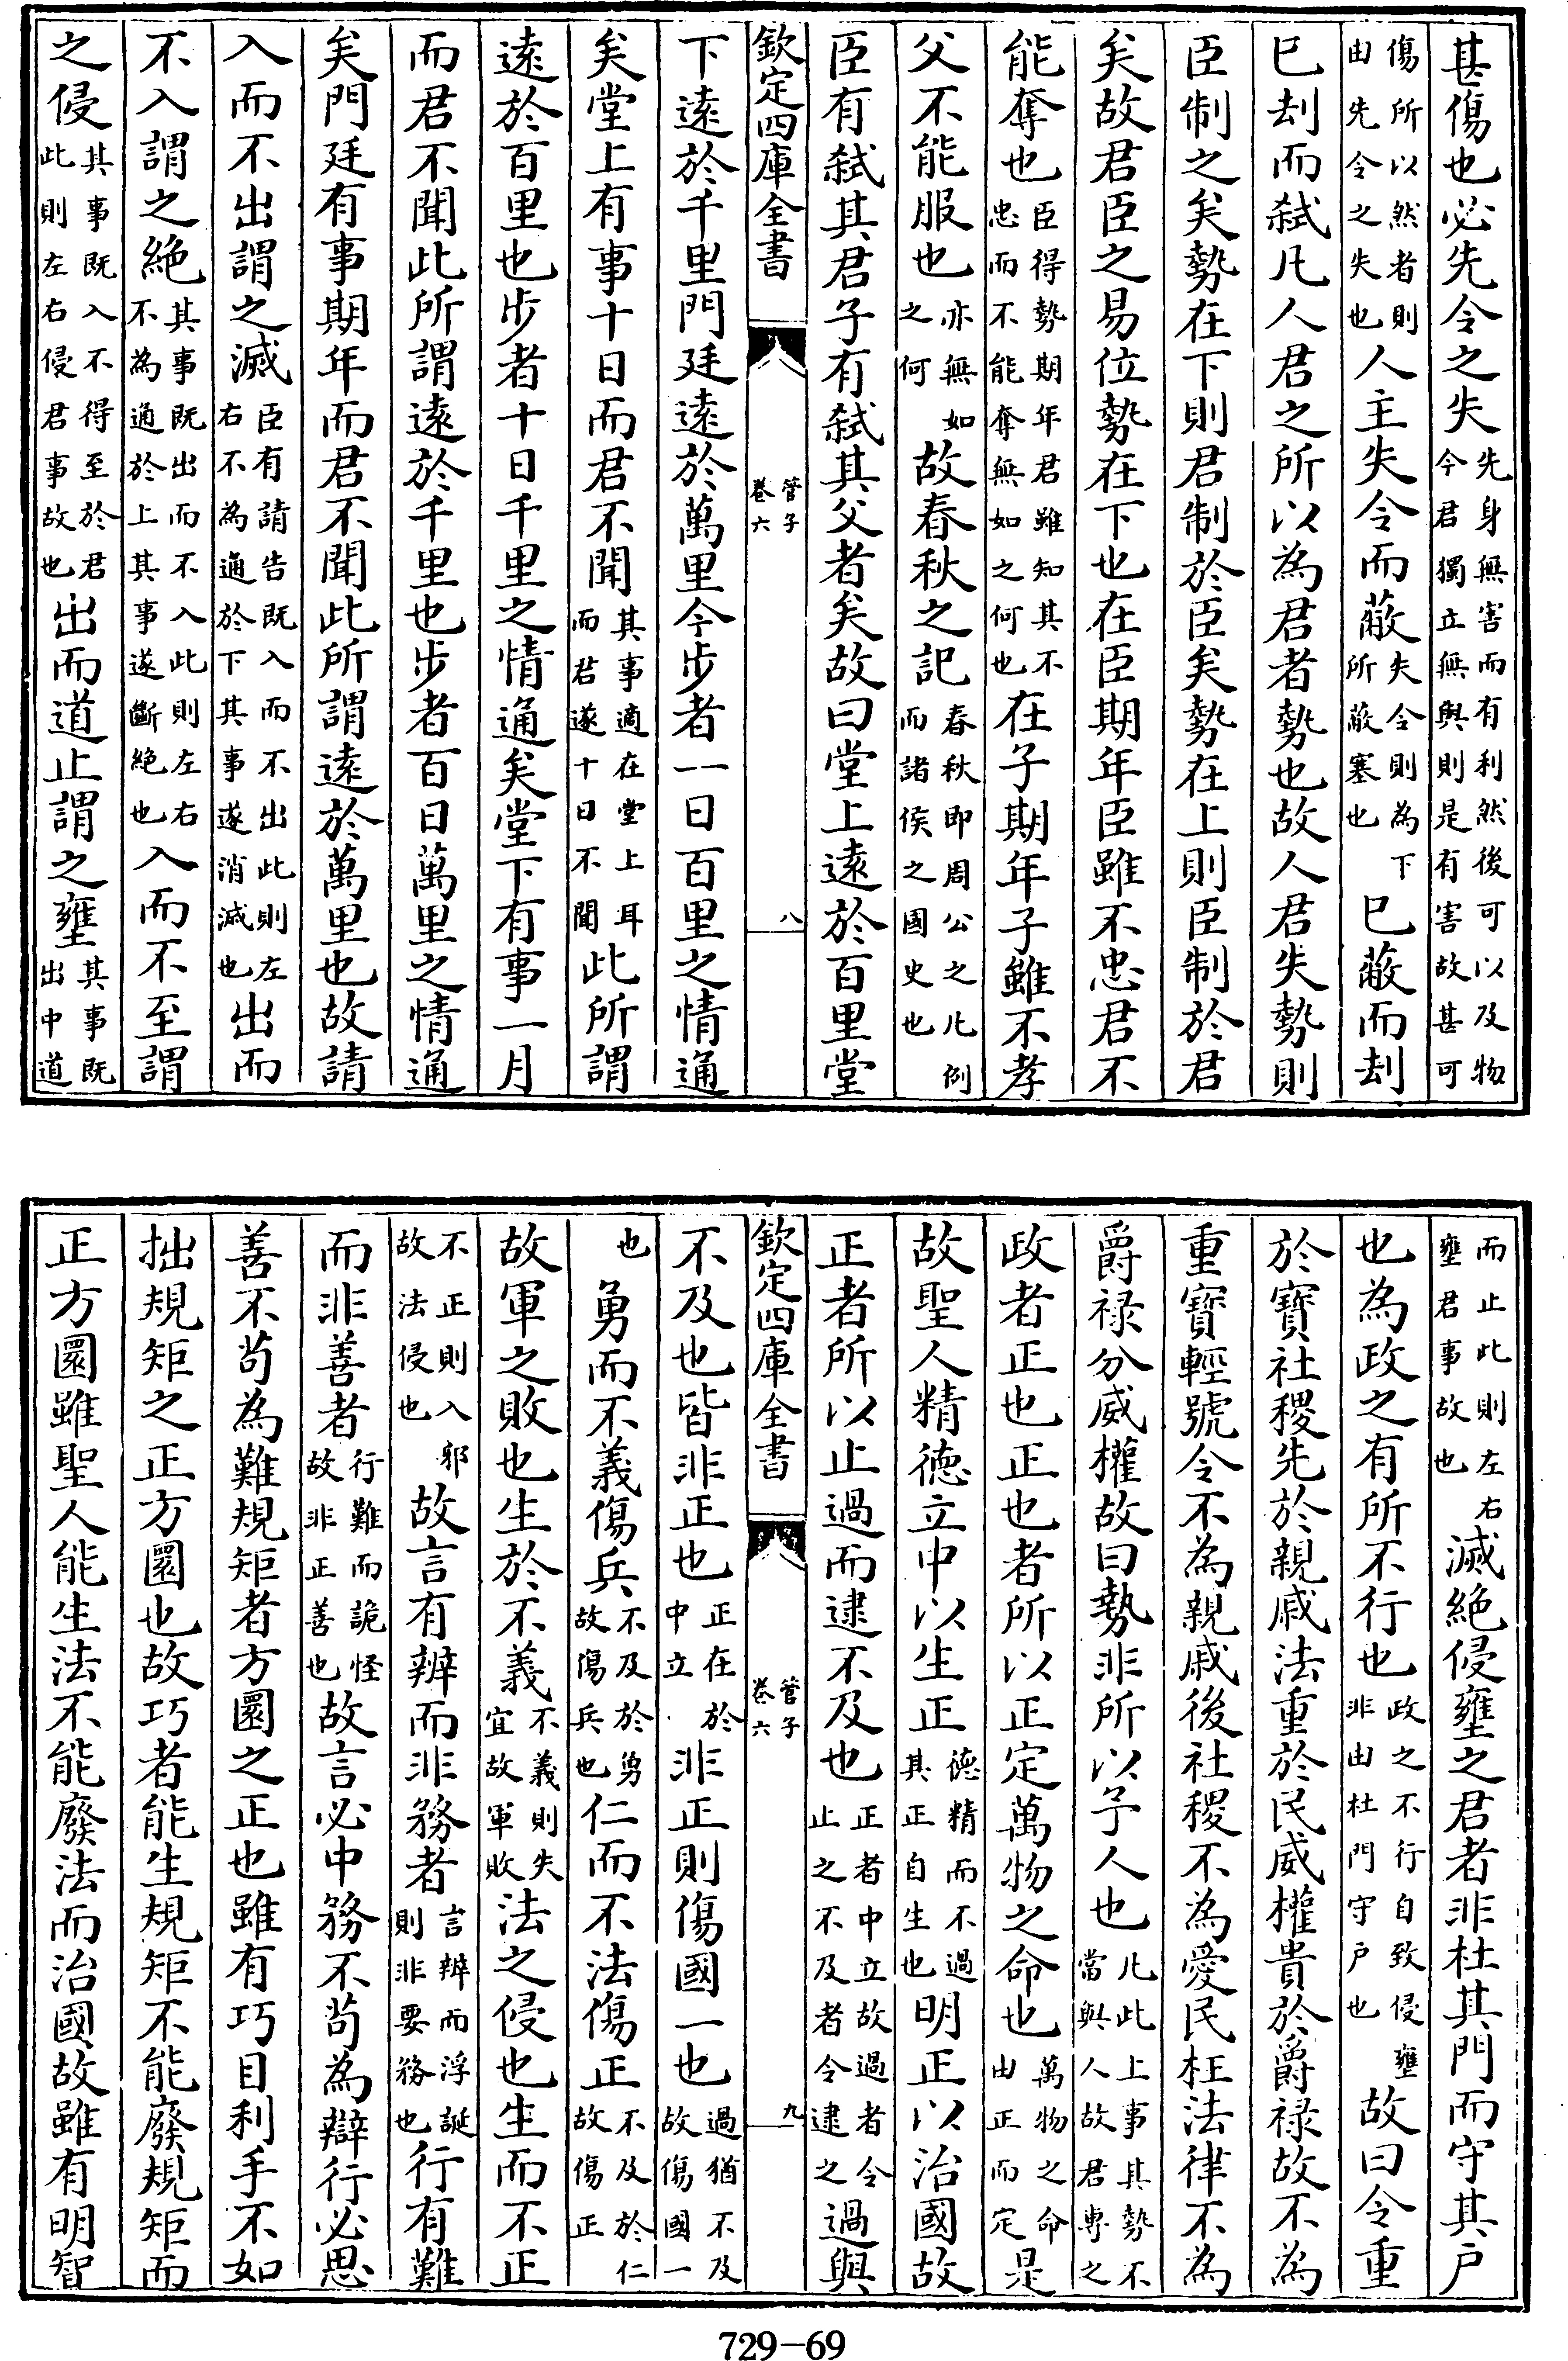 甚傷也必先令之失先身無害而有利然後可以及物今君獨立無與則是有害故甚可
傷所以然者則由先令之失也人主失令而蔽失令則為下所蔽塞也已蔽而刦
已刦而弑凡人君之所以為君者勢也故人君失勢則
臣制之矣勢在下則君制於臣矣勢在上則臣制於君
矣故君臣之易位勢在下也在臣期年臣雖不忠君不
能奪也臣得勢期年君雖知其不忠而不能奪無如之何也在子期年子雖不孝
父不能服也亦無如之何故春秋之記春秋即周公之凡例而諸侯之國史也
臣有弑其君子有弑其父者矣故曰堂上遠於百里堂
欽定四庫全書 管子卷六 八
下遠於千里門廷遠於萬里今步者一日百里之情通
矣堂上有事十日而君不聞其事適在堂上耳而君遂十日不聞此所謂
遠於百里也步者十日千里之情通矣堂下有事一月
而君不聞此所謂遠於千里也步者百日萬里之情通
矣門廷有事期年而君不聞此所謂遠於萬里也故請
入而不出謂之滅臣有請告既入而不出此則左右不為通於下其事遂消滅也出而
不入謂之絕其事既出而不入此則左右不為通於上其事遂斷絕也入而不至謂
之侵其事既入不得至於君此則左右侵君事故也出而道止謂之壅其事既出中道
而止此則左右壅君事故也滅絕侵壅之君者非杜其門而守其戶
也為政之有所不行也政之不行自致侵壅非由杜門守戶也故曰令重
於寶社稷先於親戚法重於民威權貴於爵祿故不為
重寶輕號令不為親戚後社稷不為愛民枉法律不為
爵祿分威權故曰勢非所以予人也凡此上事其勢不當與人故君專之
政者正也正也者所以正定萬物之命也萬物之命由正而定是
故聖人精德立中以生正德精而不過其正自生也明正以治國故
正者所以止過而逮不及也正者中立故過者令止之不及者令逮之過與
欽定四庫全書 管子卷六 九
不及也皆非正也正在於中立非正則傷國一也過猶不及故傷國一
也勇而不義傷兵不及於勇故傷兵也仁而不法傷正不及於仁故傷正
故軍之敗也生於不義不義則失宜故軍敗法之侵也生而不正
不正則入邪故法侵也故言有辨而非務者言辨而浮誕則非要務也行有難
而非善者行難而詭怪故非正善也故言必中務不苟為辯行必思
善不苟為難規矩者方圜之正也雖有巧目利手不如
拙規矩之正方圜也故巧者能生規矩不能廢規矩而
正方圜雖聖人能生法不能廢法而治國故雖有明智
729-69